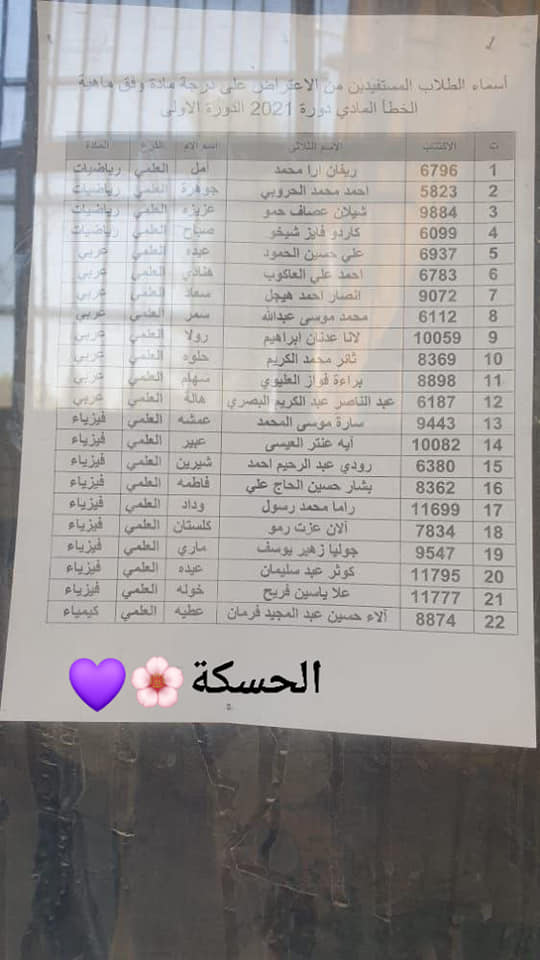 1
أسماء الطلاب المستفيدين من الاعتراض على درجة مادة وفق ماهية
الخطأ المادي دورة 2021 الدورة الاولى
ت الاكتتاب الاسم الثلاثي اسم الام الفرع المادة
1 6796 ريفان ارا محمد امل العلمي رياضيات
2 5823 احمد محمد الحروبي جوهرة العلمي رياضيات
3 9884 شيلان عصاف حمو عزيزه العلمي رياضيات
4 6099 كاردو فايز شيخو صباح العلمي رياضيات
5 6937 علي حسين الحمود عيده العلمي عربي
6 6783 احمد علي العاكوب هنادي العلمي عربي
7 9072 انصار احمد هيجل سعاد العلمي عربي
8 6112 محمد موسى عبدالله سمر العلمي عربي
9 10059 لانا عدنان ابراهيم رولا العلمي عربي
10 8369 ثائر محمد الكريم حلوه العلمي عربي
11 8898 براءة فواز العليوي سهام العلمي عربي
12 6187 عبد الناصر عبد الكريم البصري هالة العلمي عربي
13 9443 سارة موسى المحمد عمشه العلمي فيزياء
14 10082 أيه عنتر العيسى عبير العلمي فيزياء
15 6380 رودي عبد الرحيم احمد شيرين العلمي فيزياء
16 8362 بشار حسين الحاج علي فاطمه العلمي فيزياء
17 11699 راما محمد رسول وداد العلمي فيزياء
18 7834 آلان عزت رمو كلستان العلمي فيزياء
19 9547 جوليا زهير يوسف ماري العلمي فيزياء
20 11795 كوثر عبد سليمان عيده العلمي فيزياء
21 11777 علا ياسين فريح خوله العلمي فيزياء
22 8874 آلاء حسين عبد المجيد فرمان عطيه العلمي كيمياء
الحسكة